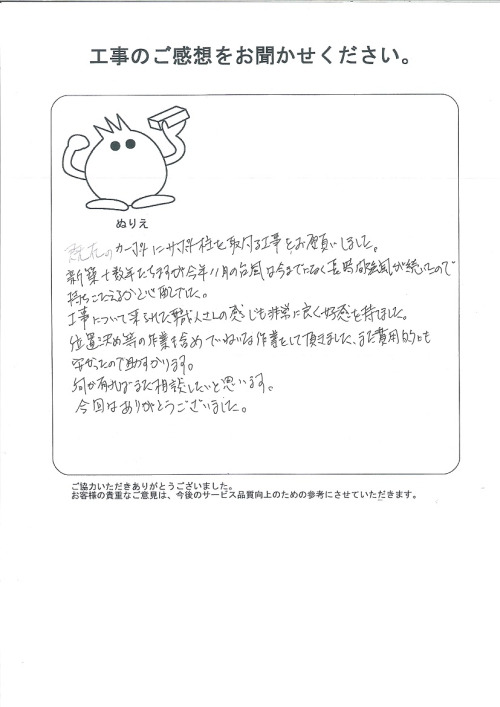 工事のご感想をお聞かせください。
ぬりえ
既存のカーポートにサポート柱を取付る工事をお願いしました。
新築十数年たちますが今年11月の台風は今までになく長時間強風が続いたので
持ちこたえるか心配でした。
工事について来られた職人さんの感じも非常に良く好感を持ました。
位置決め等の作業も含めていねいな作業をして頂きました、また費用的にも
安かったので助かります。
何か有ればまた相談したいと思います。
今回はありがとうございました。
ご協力いただきありがとうございました。
お客様の貴重なご意見は、今後のサービス品質向上のための参考にさせていただきます。